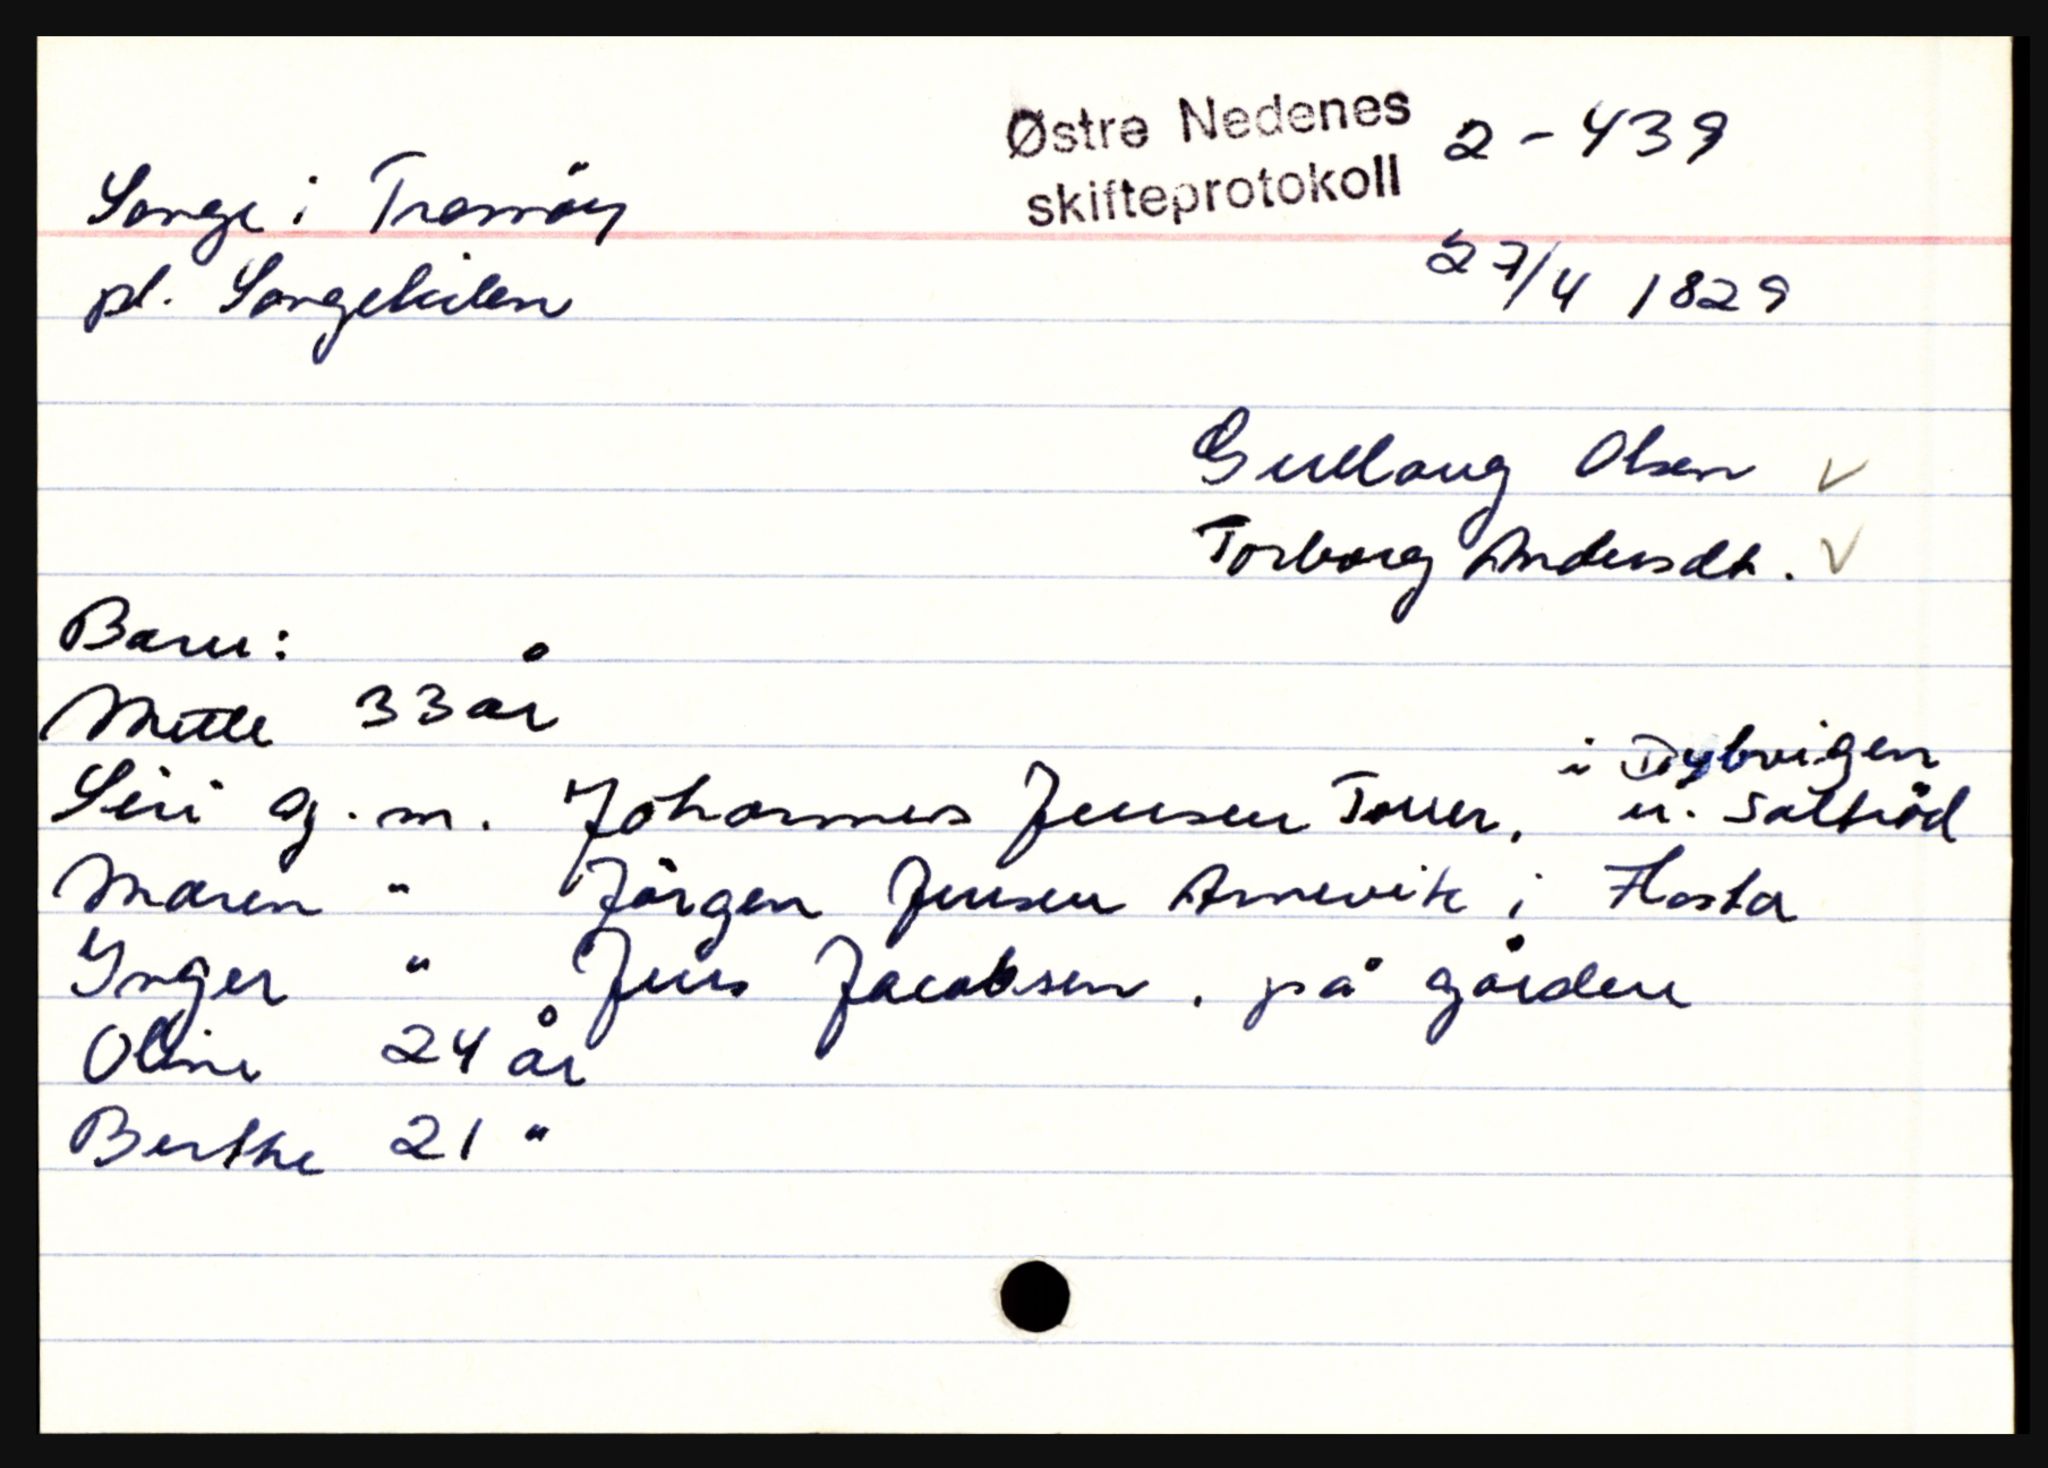 Østre Nedenes 2-439
skifteprotokoll
Songe i Tromöy
pl. Songekilen
27/4 1829
Gullaug Olsen
Torborg Andersdt.
Barn:
Mette 33 år
i Dybvigen
Siri g.m. Johannes Jensen Torser, u. Saltröd
Maren " Jörgen Jensen Arnevik i Flosta
Inger " Jens Jacobsen, på gården
Oline 24 år
Berthe 21 "